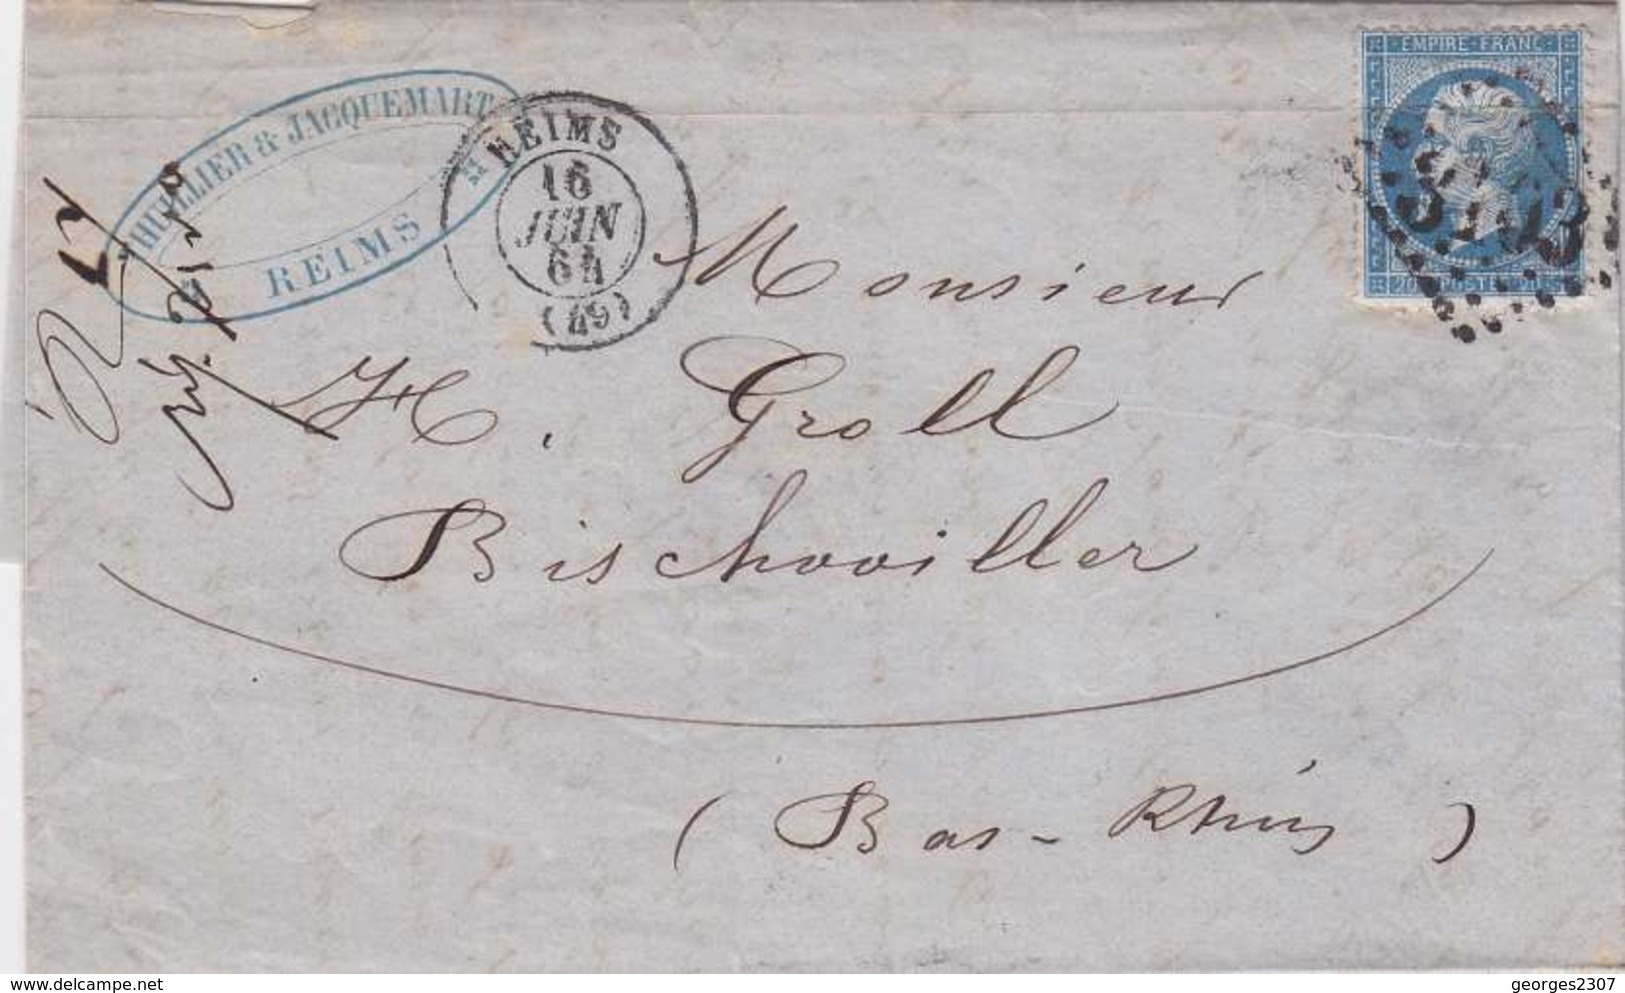 LHUILLIER & JACQUEMART
REIMS
REIMS
16
JUIN
64
(49)
EMPIRE FRANC
20 POSTES 20
3103
Monsieur
H. Groll
Bischwiller
(Bas-Rhin)
delcampe.net
georges2307